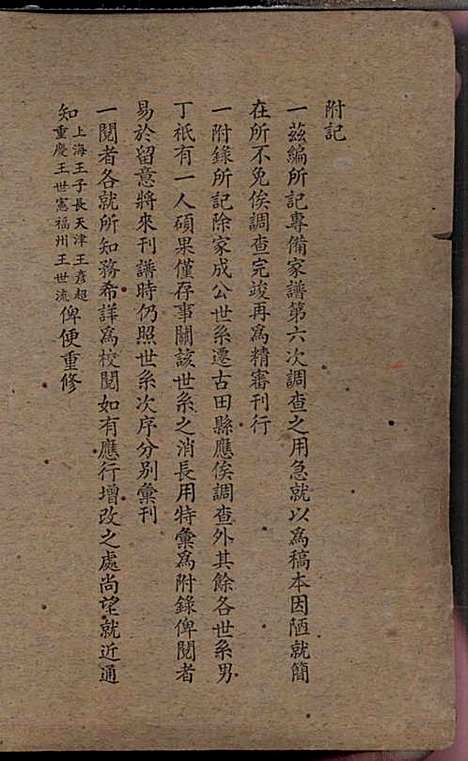 附記
一茲編所記專備家譜第六次調查之用急就以爲稿本因陋就簡
在所不免俟調查完竣再爲精審刊行
一附錄所記除家成公世系遷古田縣應俟調查外其餘各世系男
丁祇有一人碩果僅存事關該世系之消長用特彙爲附錄俾閱者
易於留意將來刊譜時仍照世系次序分別彙刊
一閱者各就所知務希詳爲校閱如有應行增改之處尚望就近通
知上海王子長天津王彥超重慶王世憲福州王世流俾便重修